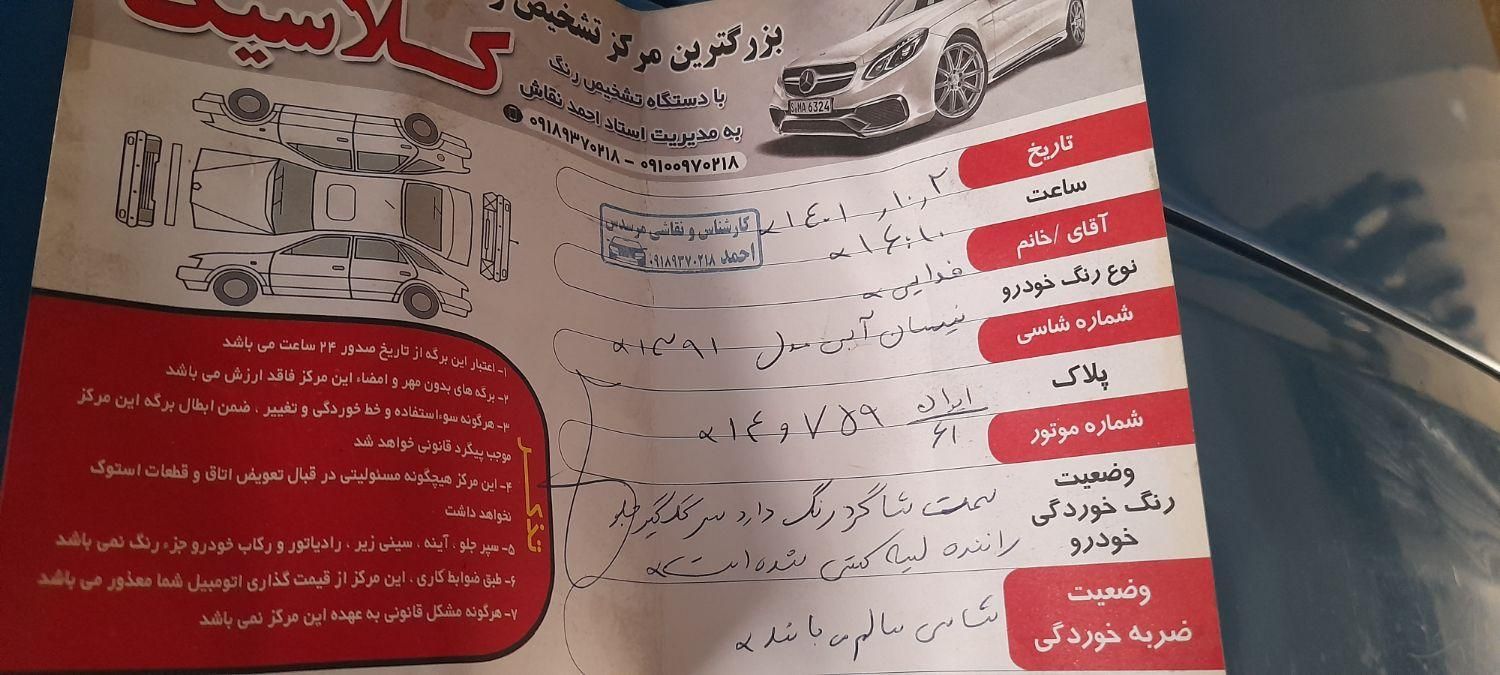 بزرگترین مرکز تشخیص
کلاسیک
با دستگاه تشخیص رنگ
به مدیریت استاد احمد نقاش
۰۹۱۰۰۹۷۰۲۱۸ - ۰۹۱۸۹۳۷۰۲۱۸
S MA 6324
تاریخ
ساعت
۱۴۰۱
۱۶:۱۰
کارشناس و نقاشی مرسدس
احمد ۰۹۱۸۹۳۷۰۲۱۸
آقای /خانم
فدایی
نوع رنگ خودرو
نیسان آبی مدل ۱۳۹۱
شماره شاسی
پلاک
ایران ۶۱ ۷۵۹ و ۱۴
شماره موتور
وضعیت رنگ خوردگی خودرو
سمت شاگرد رنگ دارد سر گلگیر جلو
راننده لیسه کشی شده است
وضعیت ضربه خوردگی
شاسی سالم می باشد
تذکر
۱- اعتبار این برگه از تاریخ صدور ۲۴ ساعت می باشد
۲- برگه های بدون مهر و امضاء این مرکز فاقد ارزش می باشد
۳- هرگونه سوءاستفاده و خط خوردگی و تغییر ، ضمن ابطال برگه این مرکز
موجب پیگرد قانونی خواهد شد
۴- این مرکز هیچگونه مسئولیتی در قبال تعویض اتاق و قطعات استوک
نخواهد داشت
۵- سپر جلو ، آینه ، سینی زیر ، رادیاتور و رکاب خودرو جزء رنگ نمی باشد
۶- طبق ضوابط کاری ، این مرکز از قیمت گذاری اتومبیل شما معذور می باشد
۷- هرگونه مشکل قانونی به عهده این مرکز نمی باشد